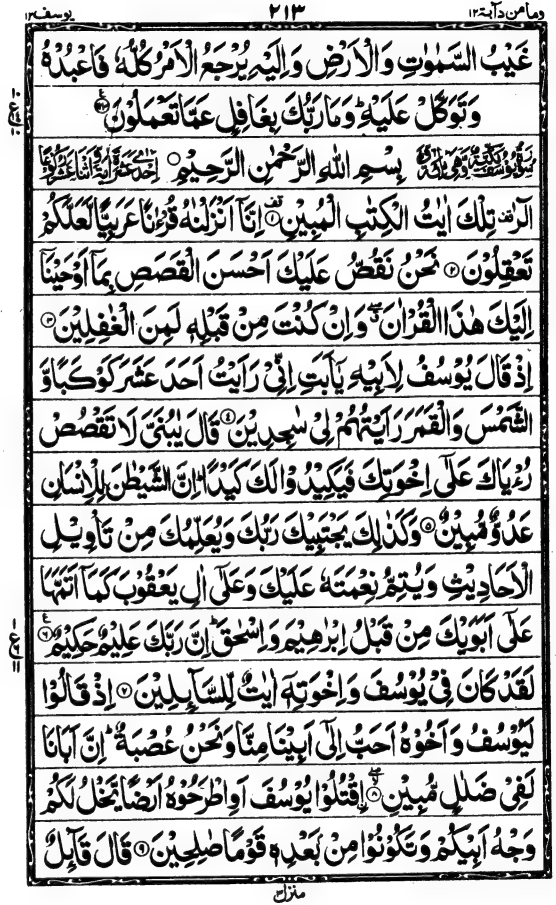 یوسف ۱۲ ۲۱۳ وما من دآبة ۱۲
غَيْبُ السَّمٰوٰتِ وَالْاَرْضِ وَاِلَيْهِ يُرْجَعُ الْاَمْرُ كُلُّهٗ فَاعْبُدْهُ
وَتَوَكَّلْ عَلَيْهِ ؕ وَمَا رَبُّكَ بِغَافِلٍ عَمَّا تَعْمَلُوْنَ
بِسْمِ اللهِ الرَّحْمٰنِ الرَّحِيْمِ
الٓرٰ تِلْكَ اٰيٰتُ الْكِتٰبِ الْمُبِيْنِ ۱ اِنَّآ اَنْزَلْنٰهُ قُرْءٰنًا عَرَبِيًّا لَّعَلَّكُمْ
تَعْقِلُوْنَ ۲ نَحْنُ نَقُصُّ عَلَيْكَ اَحْسَنَ الْقَصَصِ بِمَآ اَوْحَيْنَآ
اِلَيْكَ هٰذَا الْقُرْاٰنَ وَاِنْ كُنْتَ مِنْ قَبْلِهٖ لَمِنَ الْغٰفِلِيْنَ ۳
اِذْ قَالَ يُوْسُفُ لِاَبِيْهِ يٰٓاَبَتِ اِنِّيْ رَاَيْتُ اَحَدَ عَشَرَ كَوْكَبًا وَّ
الشَّمْسَ وَالْقَمَرَ رَاَيْتُهُمْ لِيْ سٰجِدِيْنَ ۴ قَالَ يٰبُنَيَّ لَا تَقْصُصْ
رُءْيَاكَ عَلٰٓى اِخْوَتِكَ فَيَكِيْدُوْا لَكَ كَيْدًا ؕ اِنَّ الشَّيْطٰنَ لِلْاِنْسَانِ
عَدُوٌّ مُّبِيْنٌ ۵ وَكَذٰلِكَ يَجْتَبِيْكَ رَبُّكَ وَيُعَلِّمُكَ مِنْ تَاْوِيْلِ
الْاَحَادِيْثِ وَيُتِمُّ نِعْمَتَهٗ عَلَيْكَ وَعَلٰٓى اٰلِ يَعْقُوْبَ كَمَآ اَتَمَّهَا
عَلٰٓى اَبَوَيْكَ مِنْ قَبْلُ اِبْرٰهِيْمَ وَاِسْحٰقَ ؕ اِنَّ رَبَّكَ عَلِيْمٌ حَكِيْمٌ ۶
لَقَدْ كَانَ فِيْ يُوْسُفَ وَاِخْوَتِهٖٓ اٰيٰتٌ لِّلسَّآىِٕلِيْنَ ۷ اِذْ قَالُوْا
لَيُوْسُفُ وَاَخُوْهُ اَحَبُّ اِلٰٓى اَبِيْنَا مِنَّا وَنَحْنُ عُصْبَةٌ ؕ اِنَّ اَبَانَا
لَفِيْ ضَلٰلٍ مُّبِيْنٍ ۸ اِقْتُلُوْا يُوْسُفَ اَوِ اطْرَحُوْهُ اَرْضًا يَّخْلُ لَكُمْ
وَجْهُ اَبِيْكُمْ وَتَكُوْنُوْا مِنْۢ بَعْدِهٖ قَوْمًا صٰلِحِيْنَ ۹ قَالَ قَآىِٕلٌ
منزل ۳